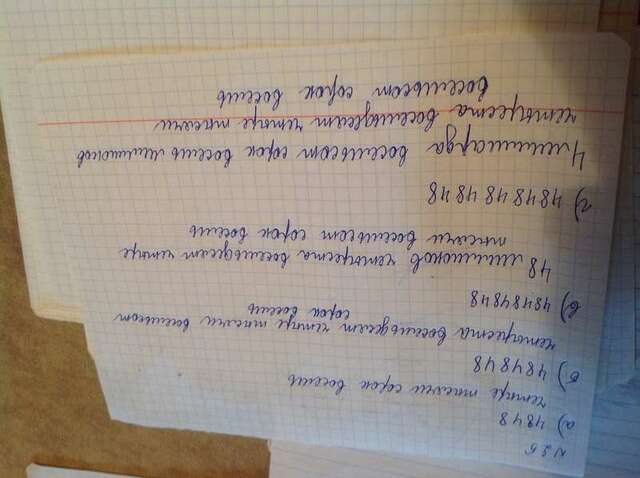 №26
а) 4848
четыре тысячи сорок восемь
б) 484848
четыреста восемьдесят четыре тысячи восемьсот
сорок восемь
в) 48484848
48 миллионов четыреста восемьдесят четыре
тысячи восемьсот сорок восемь
г) 4848484848
4 миллиарда восемьсот сорок восемь миллионов
четыреста восемьдесят четыре тысячи
восемьсот сорок восемь